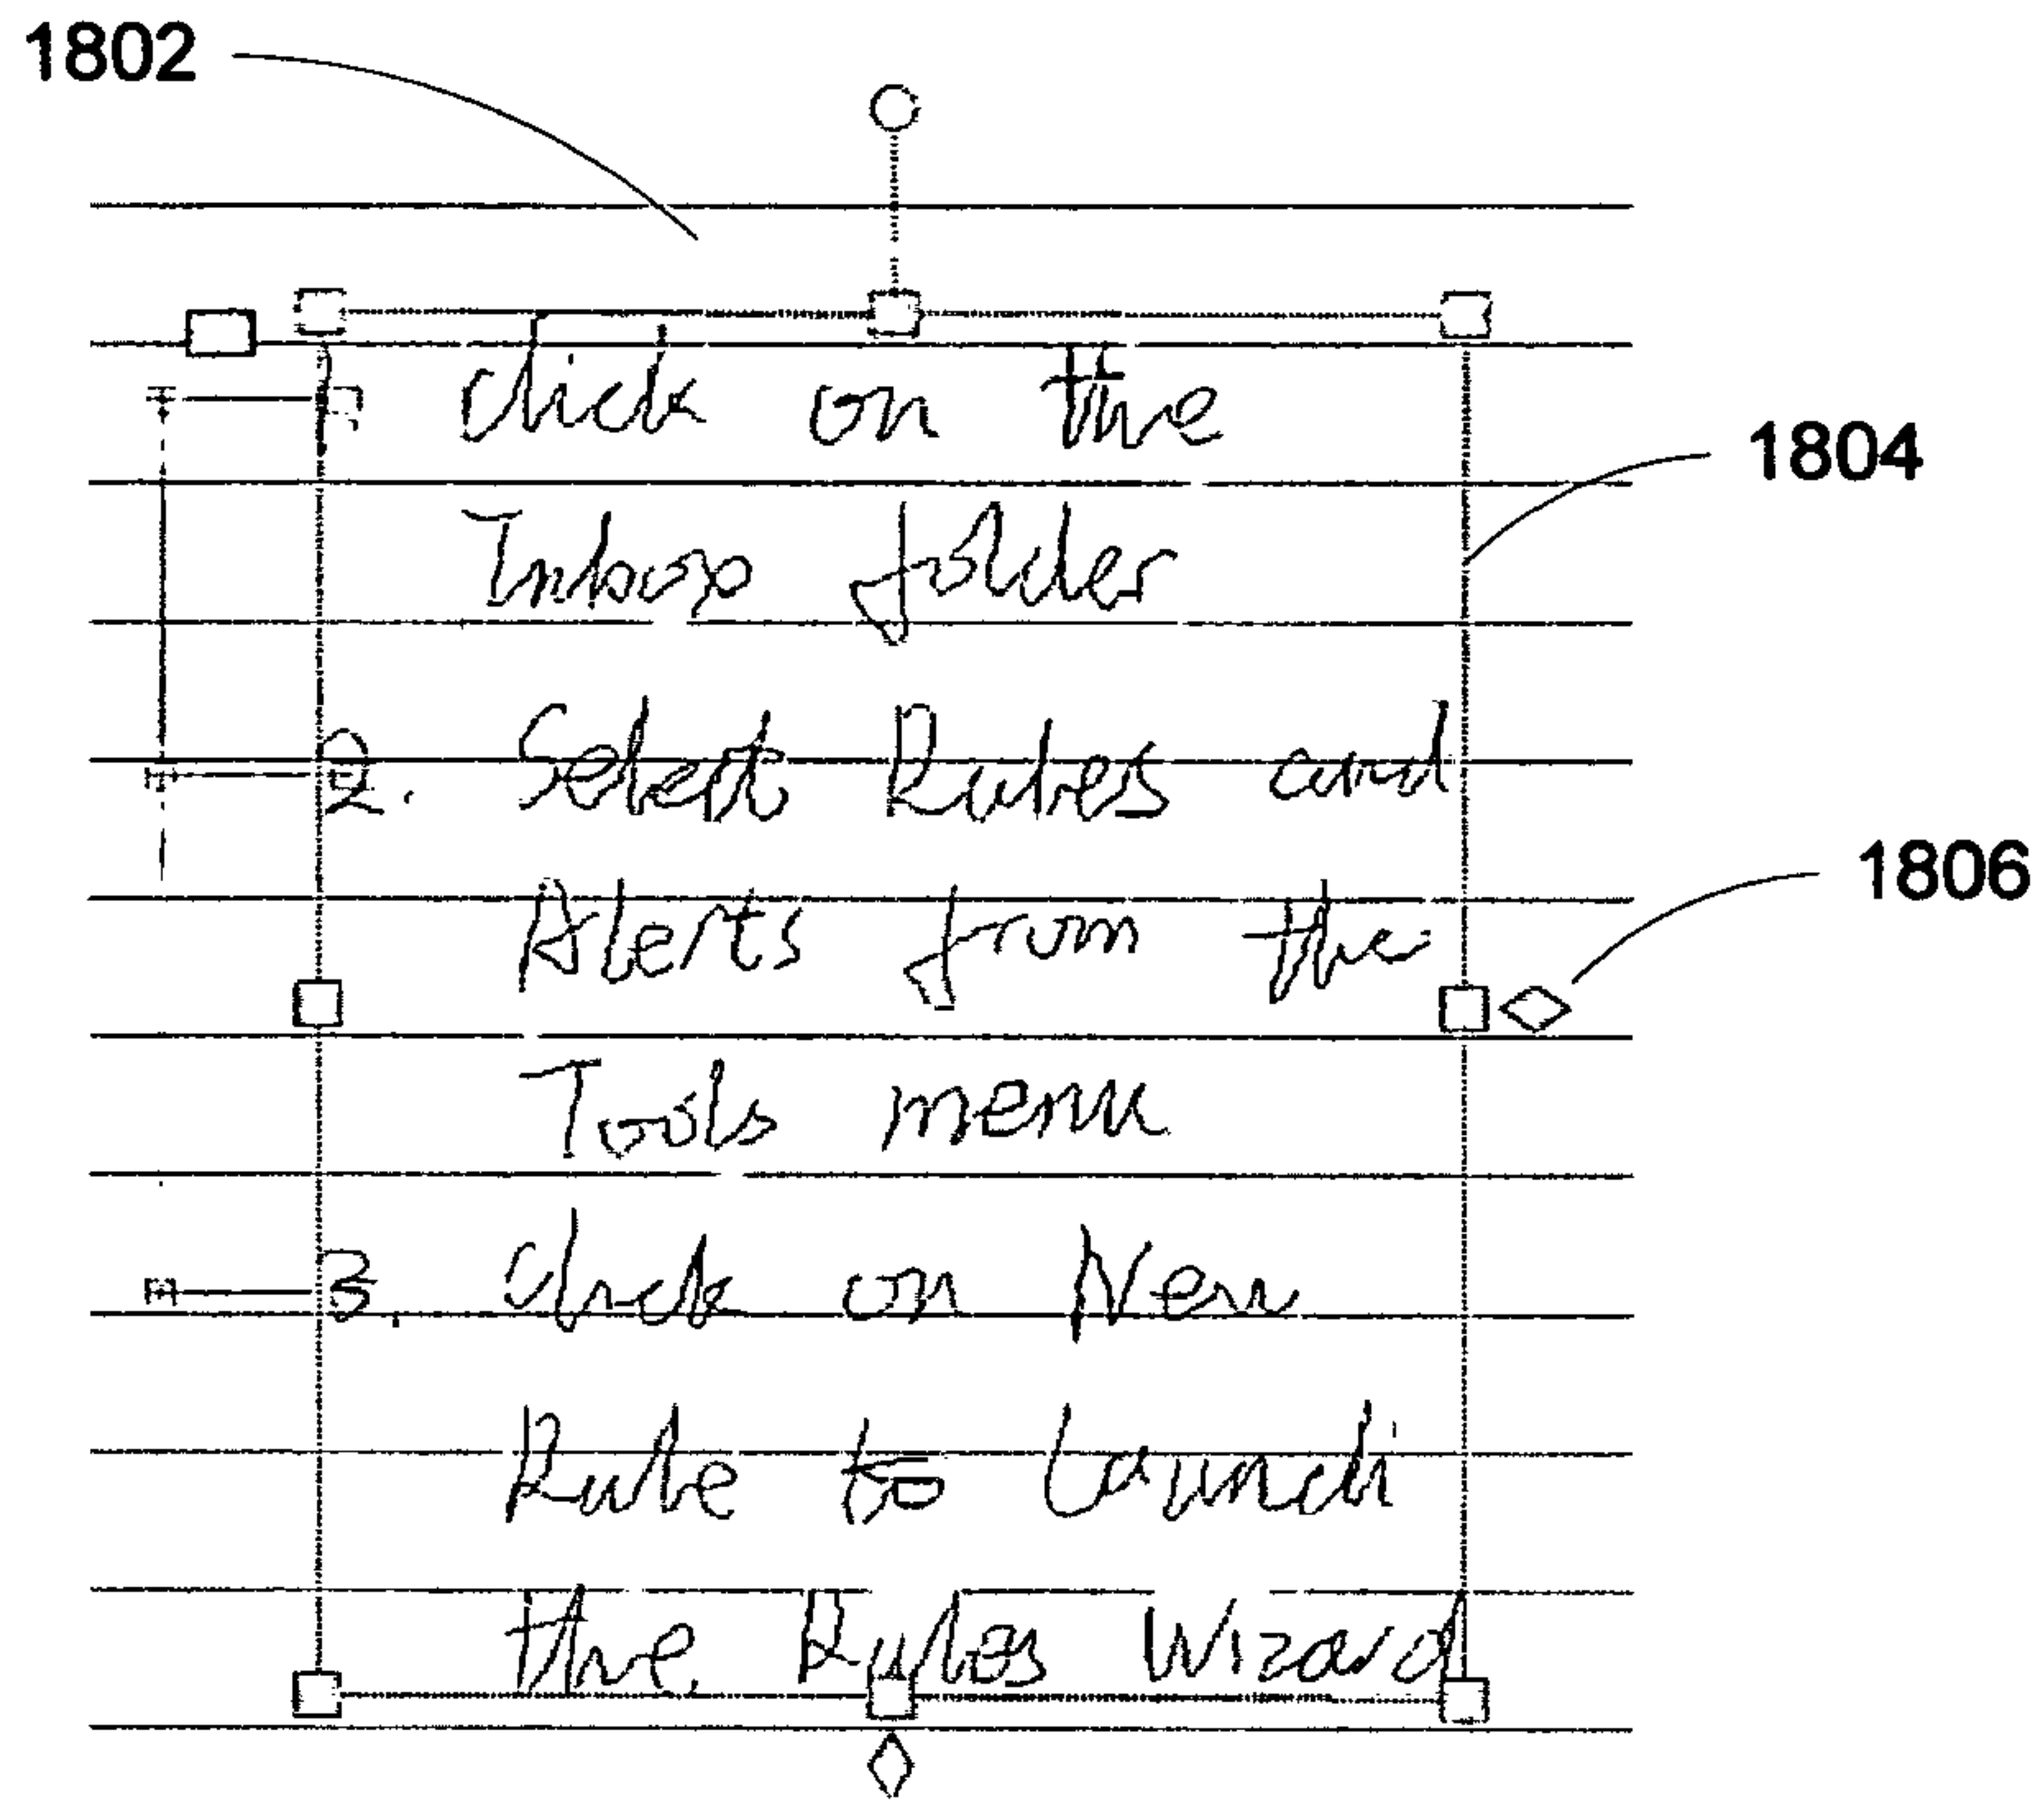 1802
1. Click on the
1804
Inbox folder
2. Select Rules and
1806
Alerts from the
Tools menu
3. Click on New
Rule to launch
the Rules Wizard